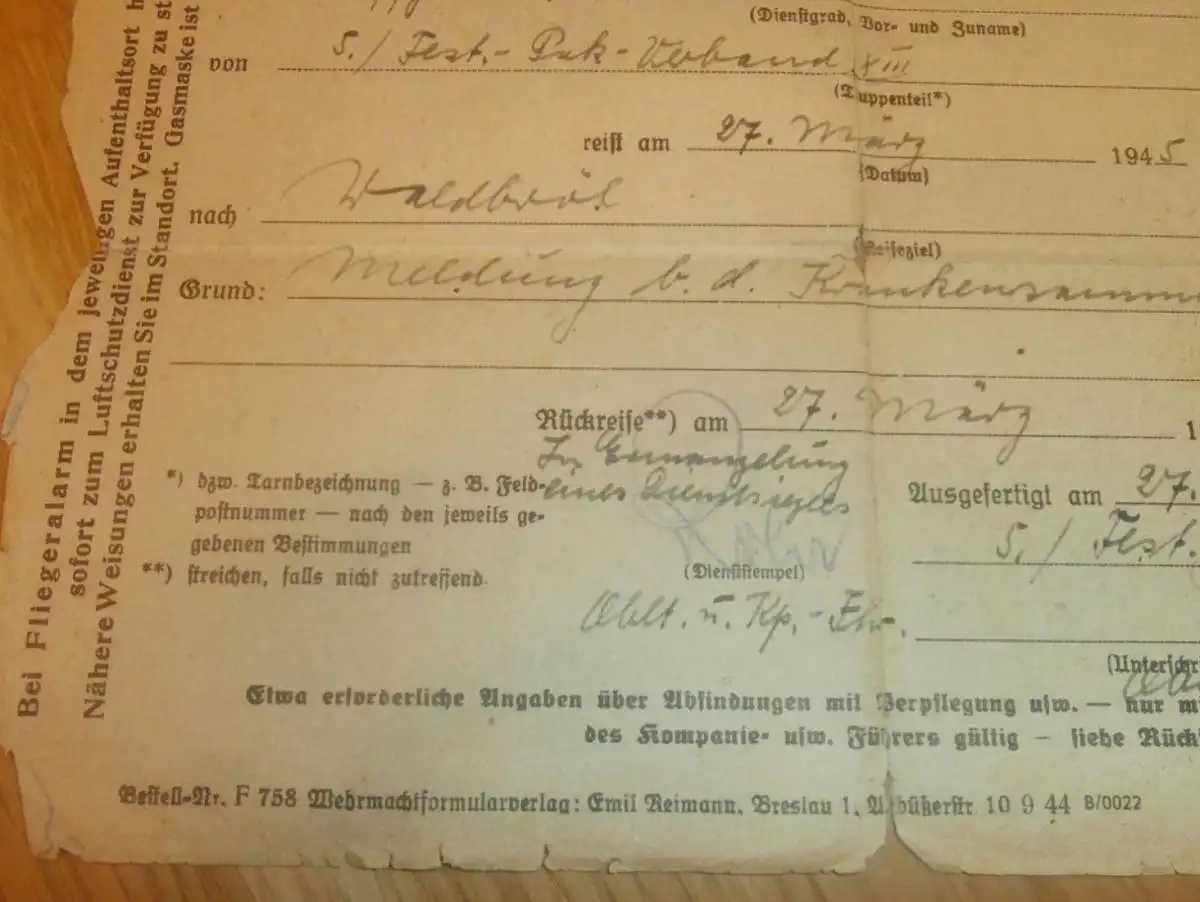 (Dienstgrad, Vor- und Zuname)
von 5./ Fest.-Pak-Verband XIII
(Truppenteil*)
reist am 27. März 1945
(Datum)
nach Waldbröl
(Reiseziel)
Grund: Meldung b. d. Krankensamm
Rückreise**) am 27. März 1
In Ermangelung
eines Dienstsiegels
*) bzw. Tarnbezeichnung — z. B. Feld-
postnummer — nach den jeweils ge-
gebenen Bestimmungen
**) streichen, falls nicht zutreffend.
Ausgefertigt am 27.
5./ Fest.
(Dienststempel)
Oblt. u. Kp.-Fhr.
(Unterschr
Etwa erforderliche Angaben über Abfindungen mit Verpflegung usw. — nur m
des Kompanie- usw. Führers gültig — siehe Rück
Bestell-Nr. F 758 Wehrmachtformularverlag: Emil Reimann, Breslau 1, 10 9 44 B/0022
Bei Fliegeralarm in dem jeweiligen Aufenthaltsort h
sofort zum Luftschutzdienst zur Verfügung zu st
Nähere Weisungen erhalten Sie im Standort. Gasmaske ist